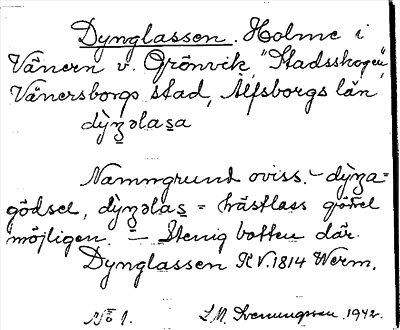 Dynglassen. Holme i
Vänern v. Grönvik "Stadsskogen",
Vänersborgs stad, Älfsborgs län
dỳŋəlasa
Namngrund oviss. – dỳŋa =
gödsel, dỳŋəlas = hästlass gödsel
möjligen. – Stenig botten där.
Dynglassen KV. 1814 Werm.
No 1. S.M. Svenungsson. 1942.